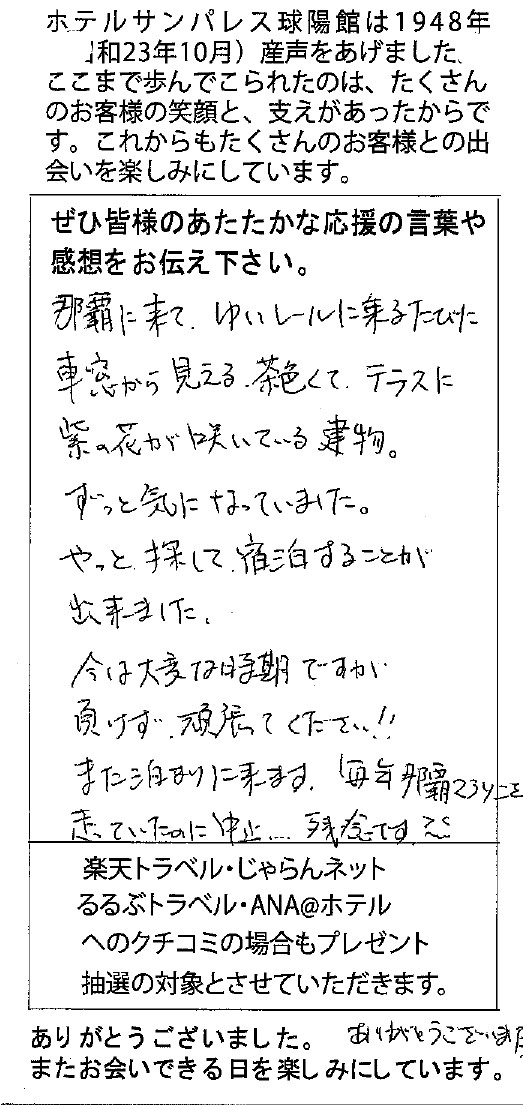 ホテルサンパレス球陽館は1948年
和23年10月）産声をあげました
ここまで歩んでこられたのは、たくさん
のお客様の笑顔と、支えがあったからで
す。これからもたくさんのお客様との出
会いを楽しみにしています。
ぜひ皆様のあたたかな応援の言葉や
感想をお伝え下さい。
那覇に来て、ゆいレールに乗るたびに
車窓から見える、茶色くて、テラスに
紫の花が咲いている建物。
ずっと気になっていました。
やっと探して、宿泊することが
出来ました。
今は大変な時期ですが
負けず、頑張ってください!!
また泊まりに来ます。毎年那覇マラソンを
走っていたのに中止…残念です
楽天トラベル・じゃらんネット
るるぶトラベル・ANA@ホテル
へのクチコミの場合もプレゼント
抽選の対象とさせていただきます。
ありがとうございました。 ありがとうございます
またお会いできる日を楽しみにしています。